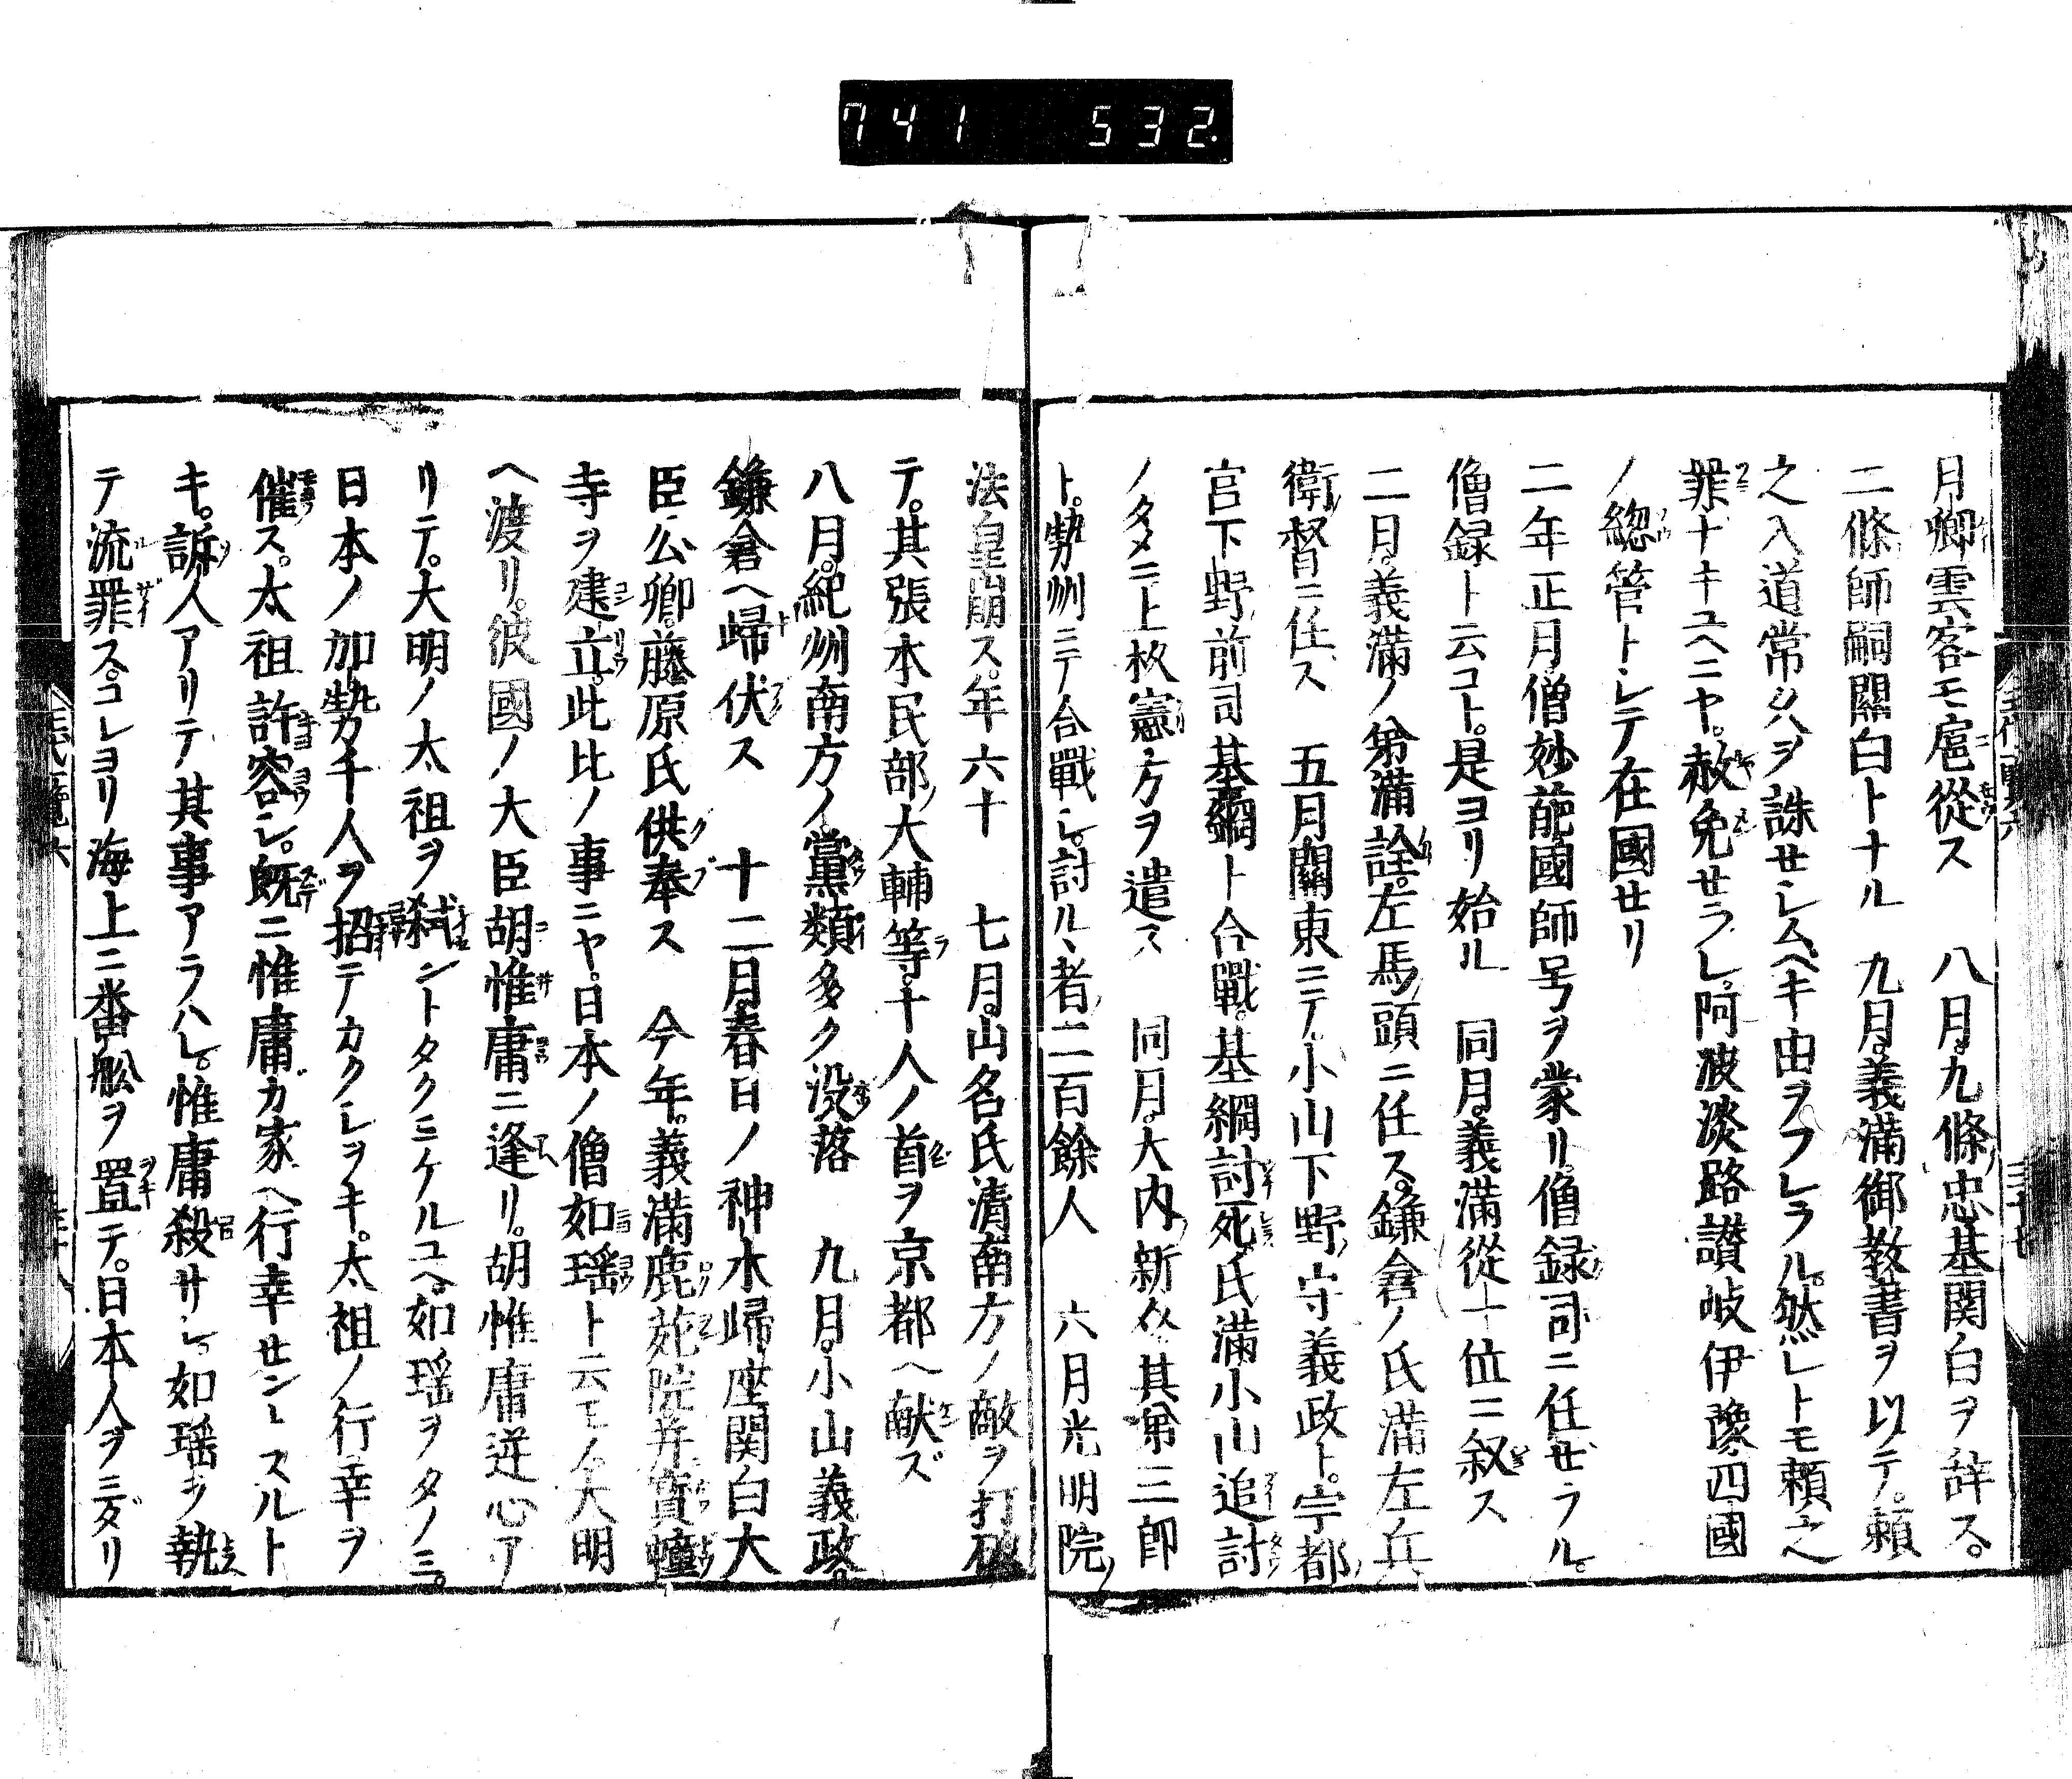 741 532
月卿雲客モ扈從ス 八月。九條忠基関白ヲ辞ス。
二條師嗣關白トナル 九月。義満御教書ヲ以テ。頼
之入道常久ヲ誅セシムヘキ由ヲフレラル。然レトモ頼之
罪ナキユヘニヤ。赦免セラレ。阿波淡路讃岐伊豫四國
ノ總管トシテ在國セリ
二年正月。僧妙葩國師号ヲ蒙リ。僧録司ニ任ゼラル。
僧録ト云コト。是ヨリ始ル 同月。義満從一位ニ叙ス
二月。義満ノ弟満詮。左馬頭ニ任ス。鎌倉ノ氏満左兵
衛督ニ任ス 五月關東ニテ。小山下野守義政ト。宇都
宮下野前司基綱ト合戰。基綱討死。氏満小山追討
ノタメニ上杦憲方ヲ遣ス 同月。大内新介其弟三郎
ト。勢州ニテ合戰シ。討ルヽ者二百餘人 六月光明院
法皇崩ス。年六十 七月。山名氏清南方ノ敵ヲ打破
テ。其張本民部大輔等。十人ノ首ヲ京都ヘ献ズ
八月。紀州南方ノ黨類多ク没落 九月。小山義政。
鎌倉ヘ歸伏ス 十二月。春日ノ神木歸座関白大
臣公卿。藤原氏供奉ス 今年。義満鹿苑院并寳幢
寺ヲ建立。此比ノ事ニヤ。日本ノ僧如瑶ト云モノ大明
ヘ渡リ。彼國ノ大臣胡惟庸ニ逢リ。胡惟庸逆心ア
リテ。大明ノ太祖ヲ弑ントタクミケルユヘ。如瑶ヲタノミ。
日本ノ加勢千人ヲ招テカクレヲキ。太祖ノ行幸ヲ
催ス。太祖許容シ。既ニ惟庸ガ家ヘ行幸センスルト
キ。訴人アリテ其事アラハレ。惟庸殺サレ如瑶ヲ執
テ流罪ス。コレヨリ海上ニ番舩ヲ置テ。日本人ヲミダリ